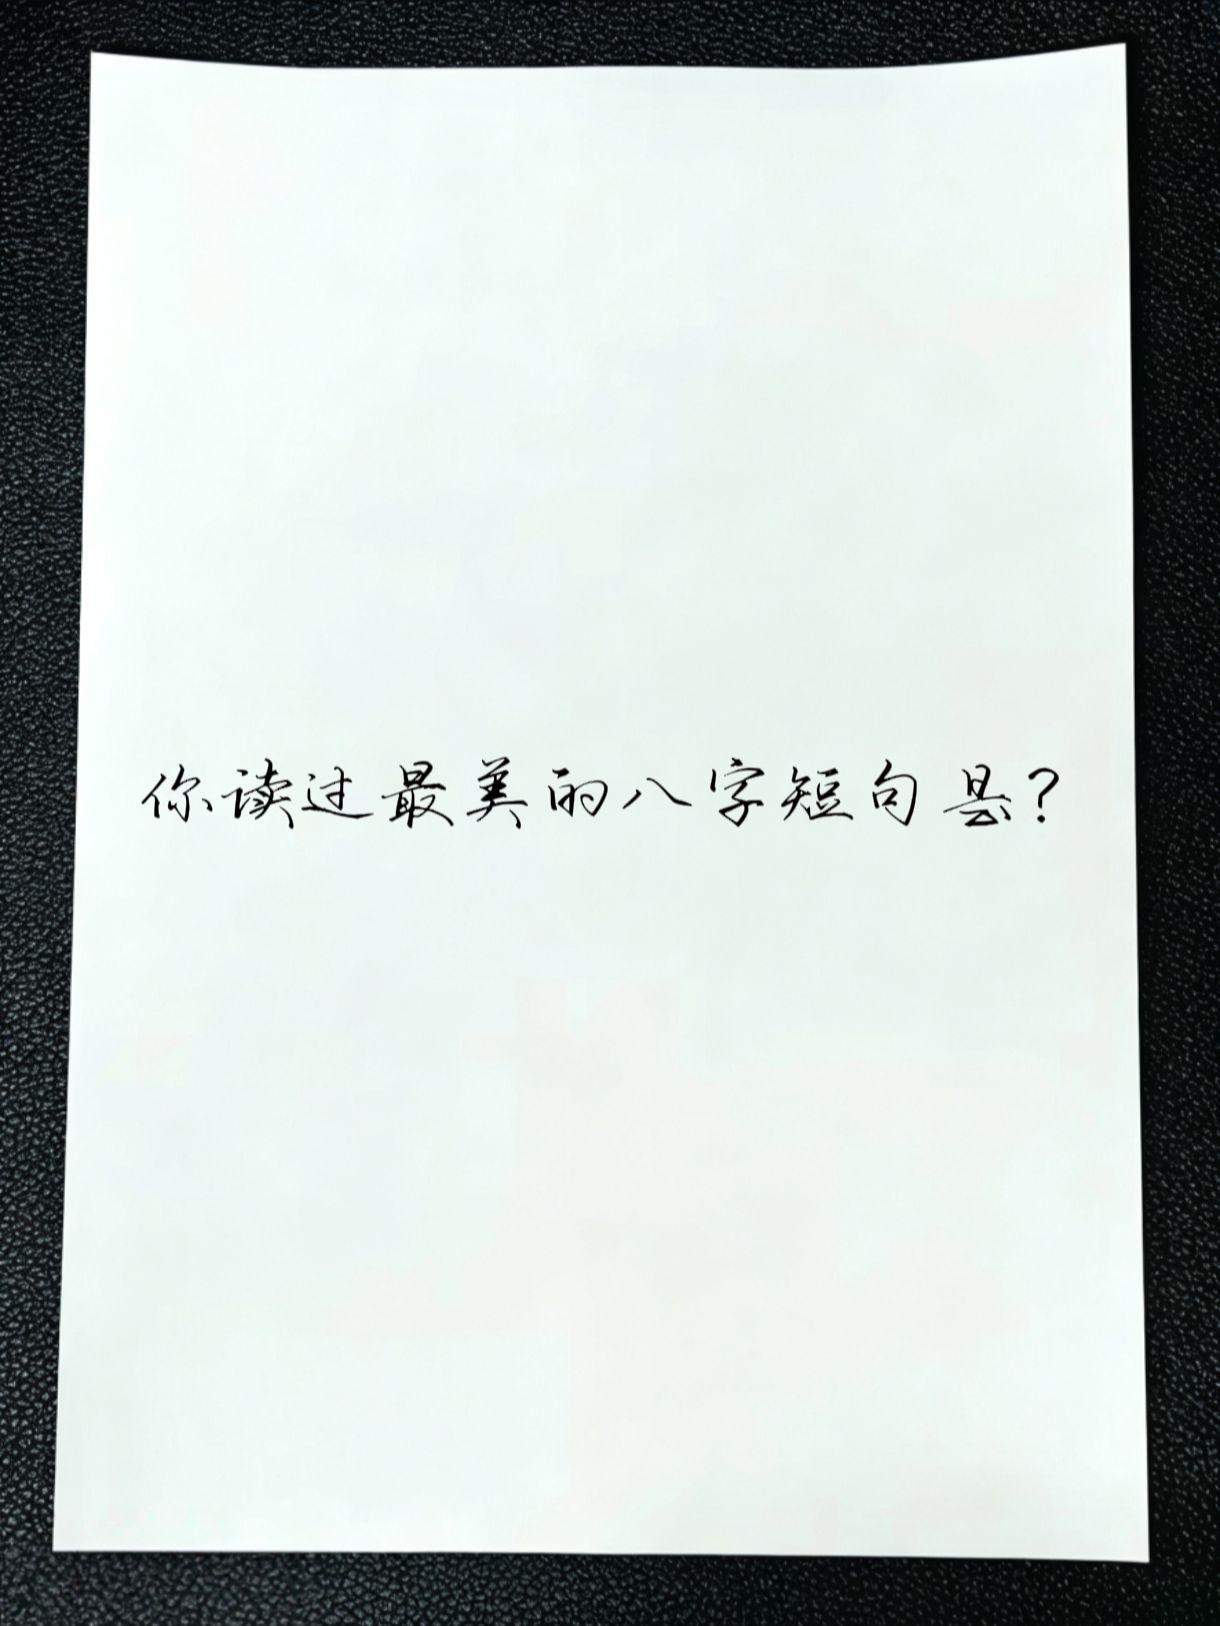 你读过最美的八字短句是?